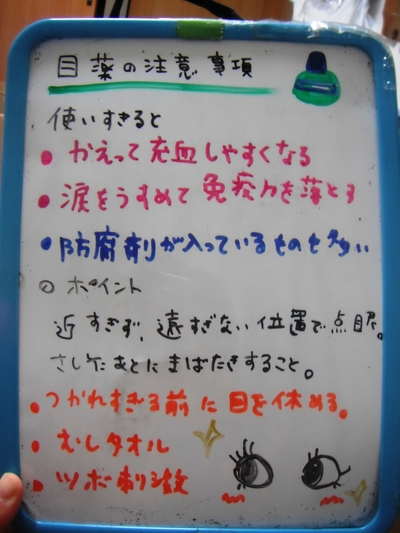 目薬の注意事項
使いすぎると
・かえって充血しやすくなる
・涙をうすめて免疫力を落とす
・防腐剤が入っているものも多い
◎ポイント
近すぎず、遠すぎない位置で点眼。
さしたあとにまばたきすること。
・つかれすぎる前に目を休める。
・むしタオル
・ツボ刺激